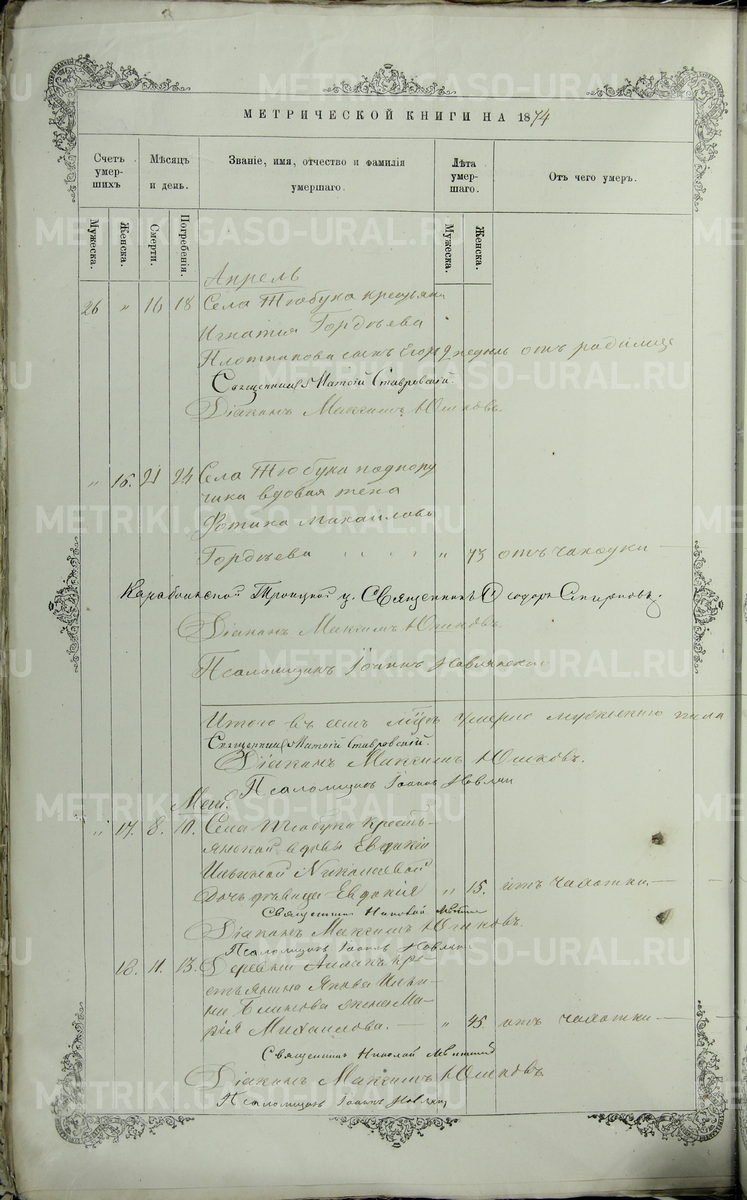 МЕТРИЧЕСКОЙ КНИГИ НА 1874
Счетъ умер-шихъ
Мѣсяцъ и день.
Званіе, имя, отчество и фамилія умершаго.
Лѣта умер-шаго.
Отъ чего умеръ.
Мужеска. Женска. Смерти. Погребенія. Мужеска. Женска.
Апрель
26 " 16 18 Села Тюбука крестьян
Игнатія Гордѣева
сынъ Егоръ 2 недѣль отъ родимца
Священникъ Ставровскій.
Діаконъ Максимъ Юшковъ.
" 16. 21 24 Села Тюбука подпору
чика вдовая жена
Фотина Михайлова
Гордѣева " 73 отъ чахотки
Троицкой ц. Священникъ Ѳеодоръ Смирновъ.
Діаконъ Максимъ Юшковъ
Псаломщикъ Іоаннъ
Итого въ семъ умерло мужескаго пола
Священникъ Ставровскій.
Діаконъ Максимъ Юшковъ.
Псаломщикъ Іоаннъ
Май.
" 17. 8. 10. Села Тюбука кресть-
янской вдовы Евдокіи
Ильиной
дочь дѣвица Евдокія " 15. отъ чахотки.
Священникъ Николай
Діаконъ Максимъ Юшковъ.
Псаломщикъ Іоаннъ
18. 11. 13. Деревни кре-
стьянина Якова
Блинова жена Ма-
рія Михаилова. " 45 отъ чахотки
Священникъ Николай
Діаконъ Максимъ Юшковъ
Псаломщикъ Іоаннъ
METRIKI.GASO-URAL.RU